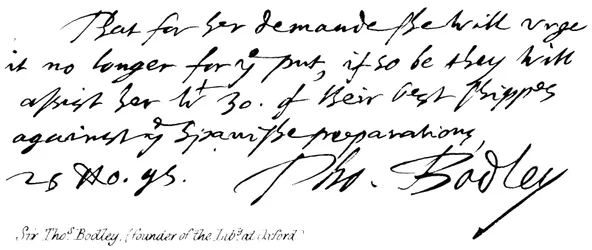 That for her demande she will vrge
it no longer for yͤ pnt, if so be they will
assist her wͭ 30. of their best shippes
against yͤ Spanishe preparations,
25 No. 95. Tho. Bodley
Sir Thoˢ. Bodley, (founder of the Libʸ. at Oxford)